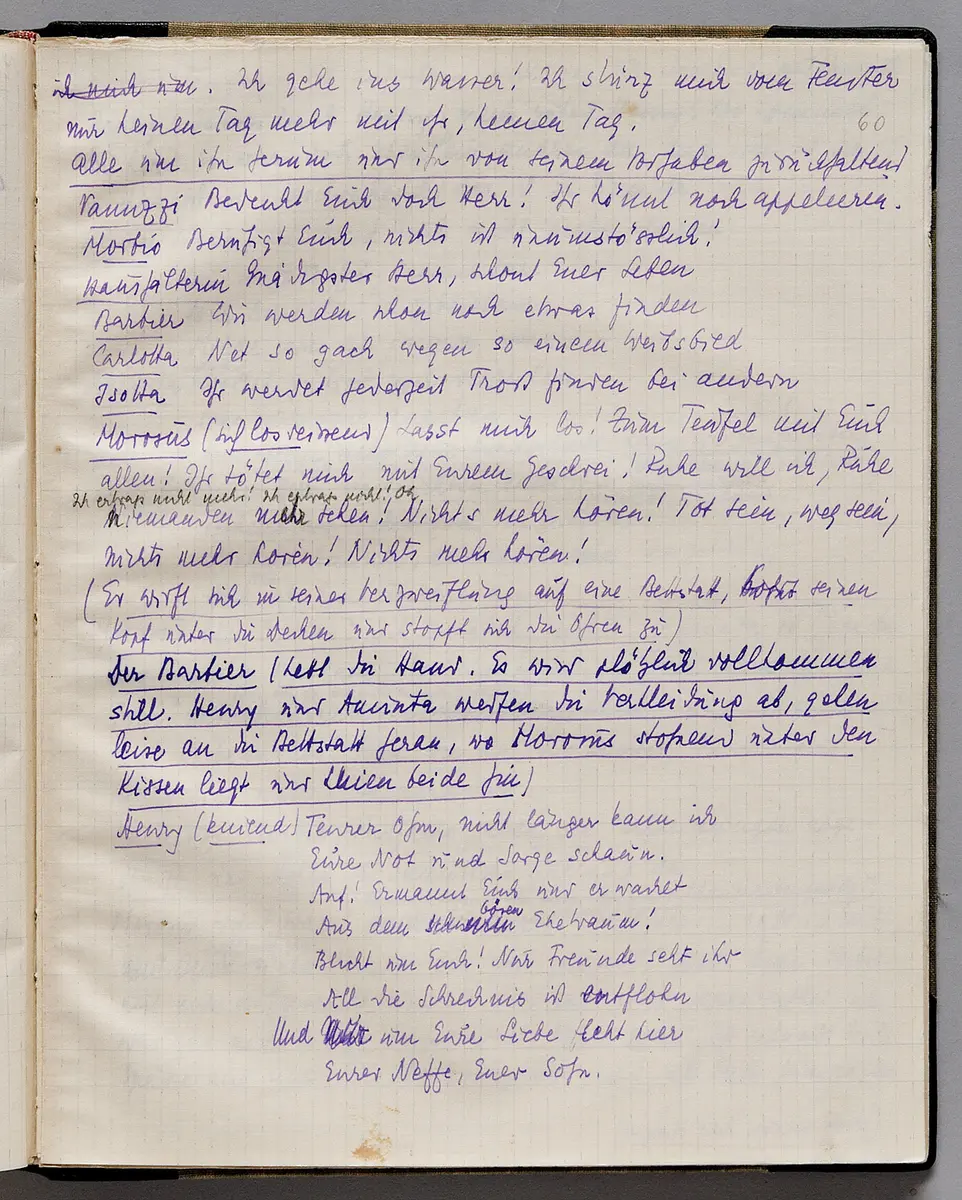 ich mich um. Ich gehe ins Wasser! Ich stürz mich vom Fenster
nur keinen Tag mehr mit ihr, keinen Tag.
60
Alle um ihn herum und ihn von seinem Vorhaben zurückhaltend
Vanuzzi Bedenkt Euch doch Herr! Ihr könnt noch appelieren.
Morbio Beruhigt Euch, nichts ist unumstösslich!
Haushälterin Gnädigster Herr, schont Euer Leben
Barbier Wir werden schon noch etwas finden
Carlotta Net so gach wegen so einem Weibsbild
Isotta Ihr werdet jederzeit Trost finden bei andern
Morosus (sich losreissend) Lasst mich los! Zum Teufel mit Euch
allen! Ihr tötet mich mit Eurem Geschrei! Ruhe will ich, Ruhe
Ich ertrag nicht mehr! Ich ertrag nicht! Oh,
Niemanden mehr sehen! Nichts mehr hören! Tot sein, weg sein,
nichts mehr hören! Nichts mehr hören!
(Er wirft sich in seiner Verzweiflung auf eine Bettstatt, bohrt seinen
Kopf unter die Decken und stopft sich die Ohren zu)
Der Barbier (hebt die Hand. Es wird plötzlich vollkommen
still. Henry und Aminta werfen die Verkleidung ab, gehen
leise an die Bettstatt heran, wo Morosus stöhnend unter den
Kissen liegt und knien beide hin)
Henry (kniend) Teurer Ohm, nicht länger kann ich
Eure Not und Sorge schaun.
Auf! Ermannt Euch und erwachet
bösen
Aus dem Ehetraum!
Blickt um Euch! Nur Freunde seht ihr
All die Schrecknis ist entflohn
Und um Eure Liebe fleht hier
Eurer Neffe, Euer Sohn.